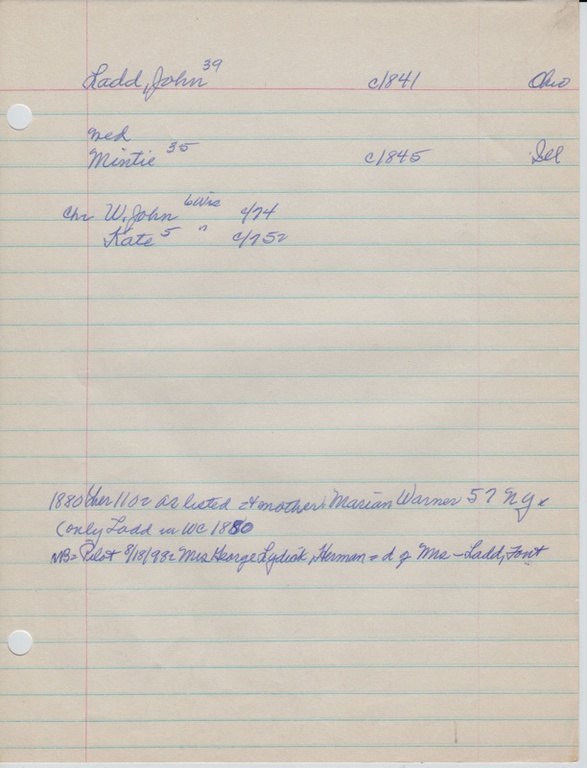 Ladd, John 39 c/841 Ohio
wed
Mintie 35 c/845 Ill
Chr W. John 6 Wis c/74
Kate 5 " c/75
1880 Cher 1102 as listed & mother Marian Warner 57 N.Y.
(only Ladd in WC 1880
NB= Pilot 8/18/98= Mrs George Lydick, Herman = d of Mrs - Ladd, Font